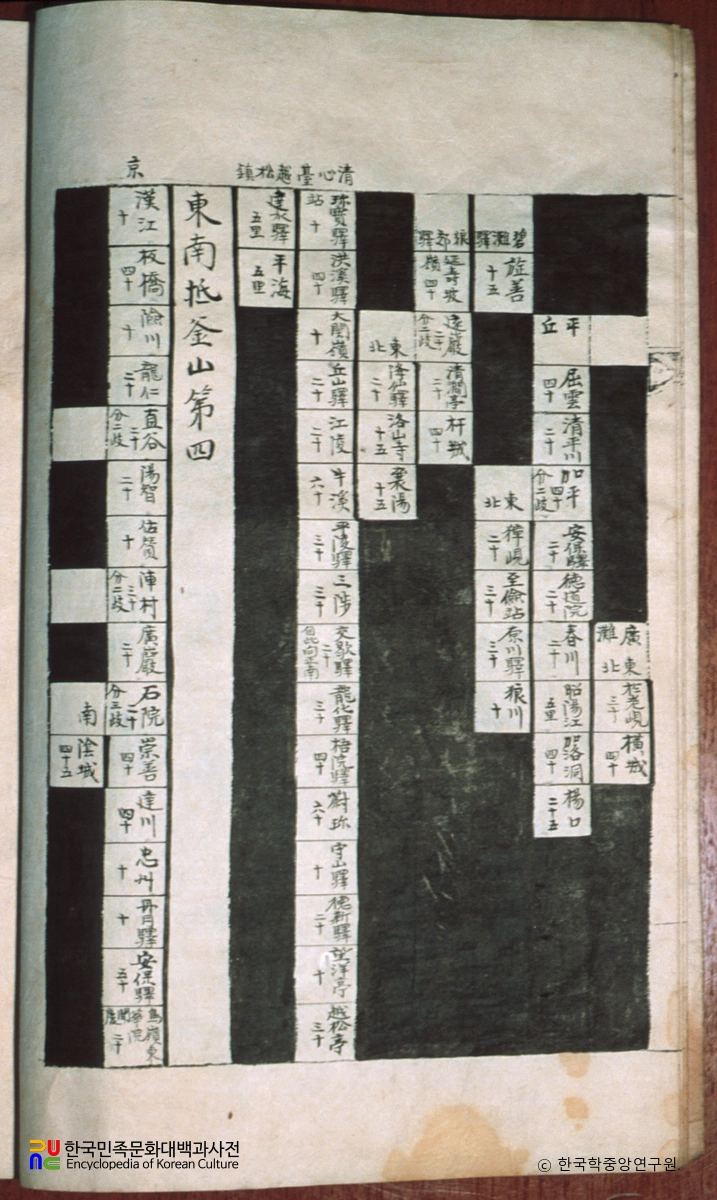 廣灘
東北
於老峴 三十
橫城 四十
平丘
屈雲 四十
清平川 二十
加平 四十 分二歧
安保驛 二十
德道院 二十
春川 二十
昭陽江 五里
加落洞 四十
楊口 二十五
碧灘驛
旌善 十五
東北
樟峴 二十
至儉站 三十
原川驛 三十
狼川 十
延壽坡嶺 四十
遠巖 二十 分二歧
清澗亭 二十
杆城 四十
東北
降仙驛 二十
洛山寺 十五
襄陽 十五
清心臺
珍賓驛站 十
洪溪驛 四十
大關嶺 十
丘山驛 二十
江陵 二十
牛溪 六十
平陵驛 三十
三陟 三十
交歇驛 二十 自此向正南
龍化驛 三十
梧院驛 四十
蔚珍 六十
守山驛 十
德新驛 二十
望洋亭 十
越松亭 三十
越松鎮
達水驛 五里
平海 五里
東南抵釜山第四
京
漢江 十
板橋 四十
險川 十
龍仁 二十
直谷 二十 分二歧
陽智 二十
佐贊 十
陣村 三十 分二歧
廣巖 二十
石院 二十 分三歧
崇善 四十
達川 四十
忠州 十
丹月驛 十
安保驛 五十
鳥嶺東 二十
南
陰城 四十五
한국민족문화대백과사전
Encyclopedia of Korean Culture
© 한국학중앙연구원